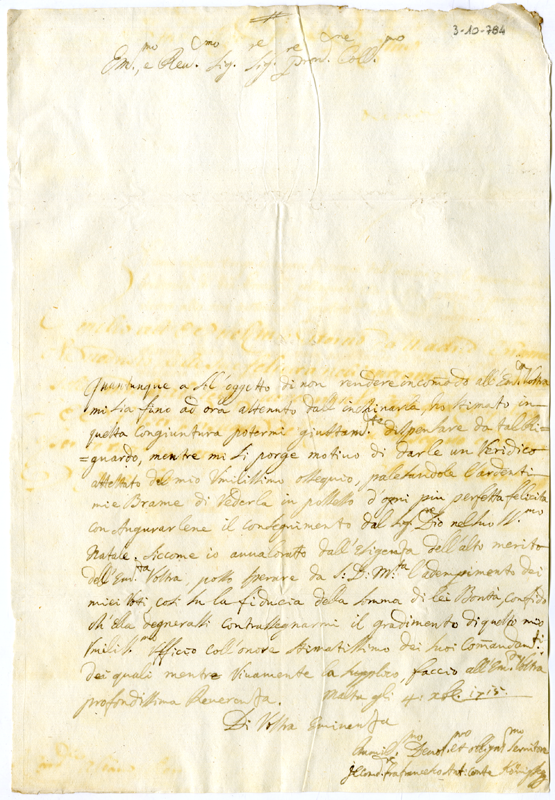 3-10-784
Em.mo e Rev.mo Sig.re Sig.re Pron.ne Coll.mo
Quantunque a sol' oggetto di non rendere incomodo all' Em.a Vostra
mi sia fino ad ora astenuto dall' inchinarla, ho stimato in
questa congiuntura potermi giustam.te dispensare da tal ri=
=guardo, mentre mi si porge motivo di darle un veridico
attestato del mio umilissimo ossequio, palesandole l'ardenti
mie Brame di vederla in possesso d'ogni più perfetta felicità
con Augurarlene il conseguimento dal Sig.re Dio nel suo SS.mo
Natale. Siccome io avvalorato dall' Esigenza dell' alto merito
dell' Em.za Vostra, posso sperare da S. D. M.tà l'adempimento dei
miei Voti, così su la fiducia della somma di lei Bontà, confido
ch' Ella degnerassi contrassegnarmi il gradimento di questo mio
umiliss.mo Uffizio coll' onore stimatissimo dei suoi Comandam.ti
dei quali mentre vivamente la supplico, faccio all' Em.za Vostra
profondissima Reverenza. Malta gli 4. xbre 1715
Di Vostra Eminenza
Umilis.mo Devot.mo et obligat.mo Servitore
fra Francesco Ant. Conte Königsegg